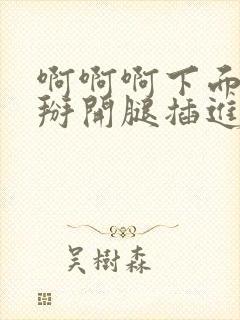 啊啊啊下而
掰開腿插進
吳樹森